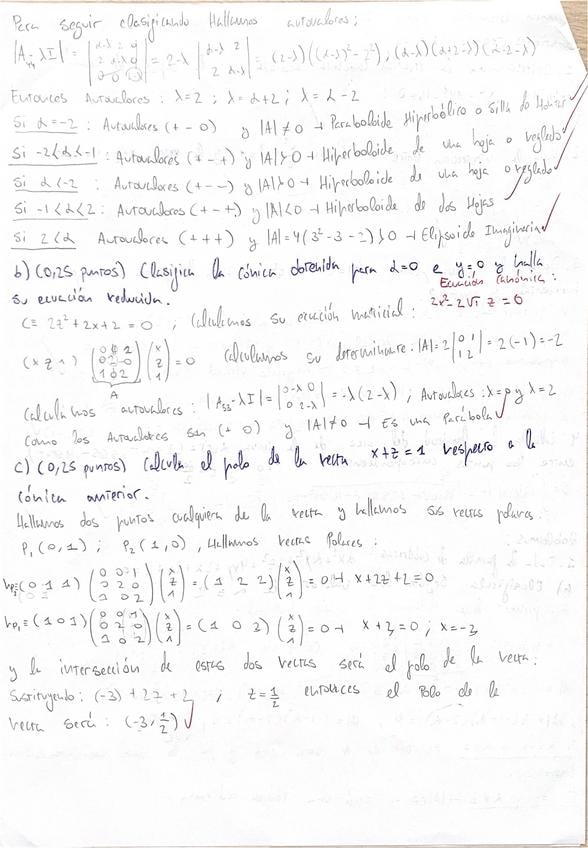 Para seguir clasificando Hallamos autovalores:
|A₄₄-λI| = |α-λ 2 0; 2 α-λ 0; 0 0 2-λ| = 2-λ |α-λ 2; 2 α-λ| = (2-λ)((α-λ)²-2²), (α-λ)(α+2-λ)(α-2-λ)
Entonces Autovalores: λ=2; λ=α+2; λ=α-2
Si α=-2: Autovalores (+ - 0) y |A|≠0 → Paraboloide Hiperbólico o silla de Montar
Si -2<α<-1: Autovalores (+ - +) y |A|>0 → Hiperboloide de una hoja o reglado
Si α<-2: Autovalores (+ - -) y |A|>0 → Hiperboloide de una hoja o reglado
Si -1<α<2: Autovalores (+ - +) y |A|<0 → Hiperboloide de dos Hojas
Si 2<α Autovalores (+ + +) y |A|=4(3²-3-2)>0 → Elipsoide Imaginario
b) (0,25 puntos) Clasifica la cónica obtenida para α=0 e y=0 y halla
su ecuación reducida.
Ecuación canónica:
2x²-2√1 z=0
C≡ 2z²+2x+2=0; Calculamos su ecuación matricial:
(x z 1) (0 0 1; 0 2 0; 1 0 2) (x; z; 1) = 0 Calculamos su determinante: |A|=2|0 1; 1 2|=2(-1)=-2
A
Calculamos autovalores: |A₃₃-λI|=|0-λ 0; 0 2-λ|=-λ(2-λ); Autovalores: λ=0 y λ=2
Como los Autovalores son (+ 0) y |A|≠0 → Es una Parábola
c) (0,25 puntos) Calcula el polo de la recta x+z=1 respecto a la
cónica anterior.
Hallamos dos puntos cualquiera de la recta y hallamos sus rectas polares.
P₁(0,1); P₂(1,0), Hallamos rectas Polares:
(0 1 1) (0 0 1; 0 2 0; 1 0 2) (x; z; 1) = (1 2 2) (x; z; 1) = 0 → x+2z+2=0
(1 0 1) (0 0 1; 0 2 0; 1 0 2) (x; z; 1) = (1 0 3) (x; z; 1) = 0 → x+3=0; x=-3
y la intersección de estas dos rectas será el polo de la recta:
Sustituyendo: (-3)+2z+2, ; z=1/2 entonces el Polo de la
recta será: (-3, 1/2)